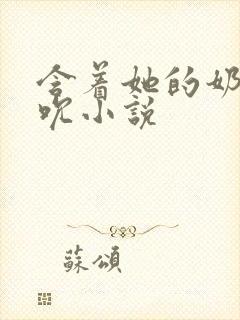 含着她的奶
吹小说
蘇頌